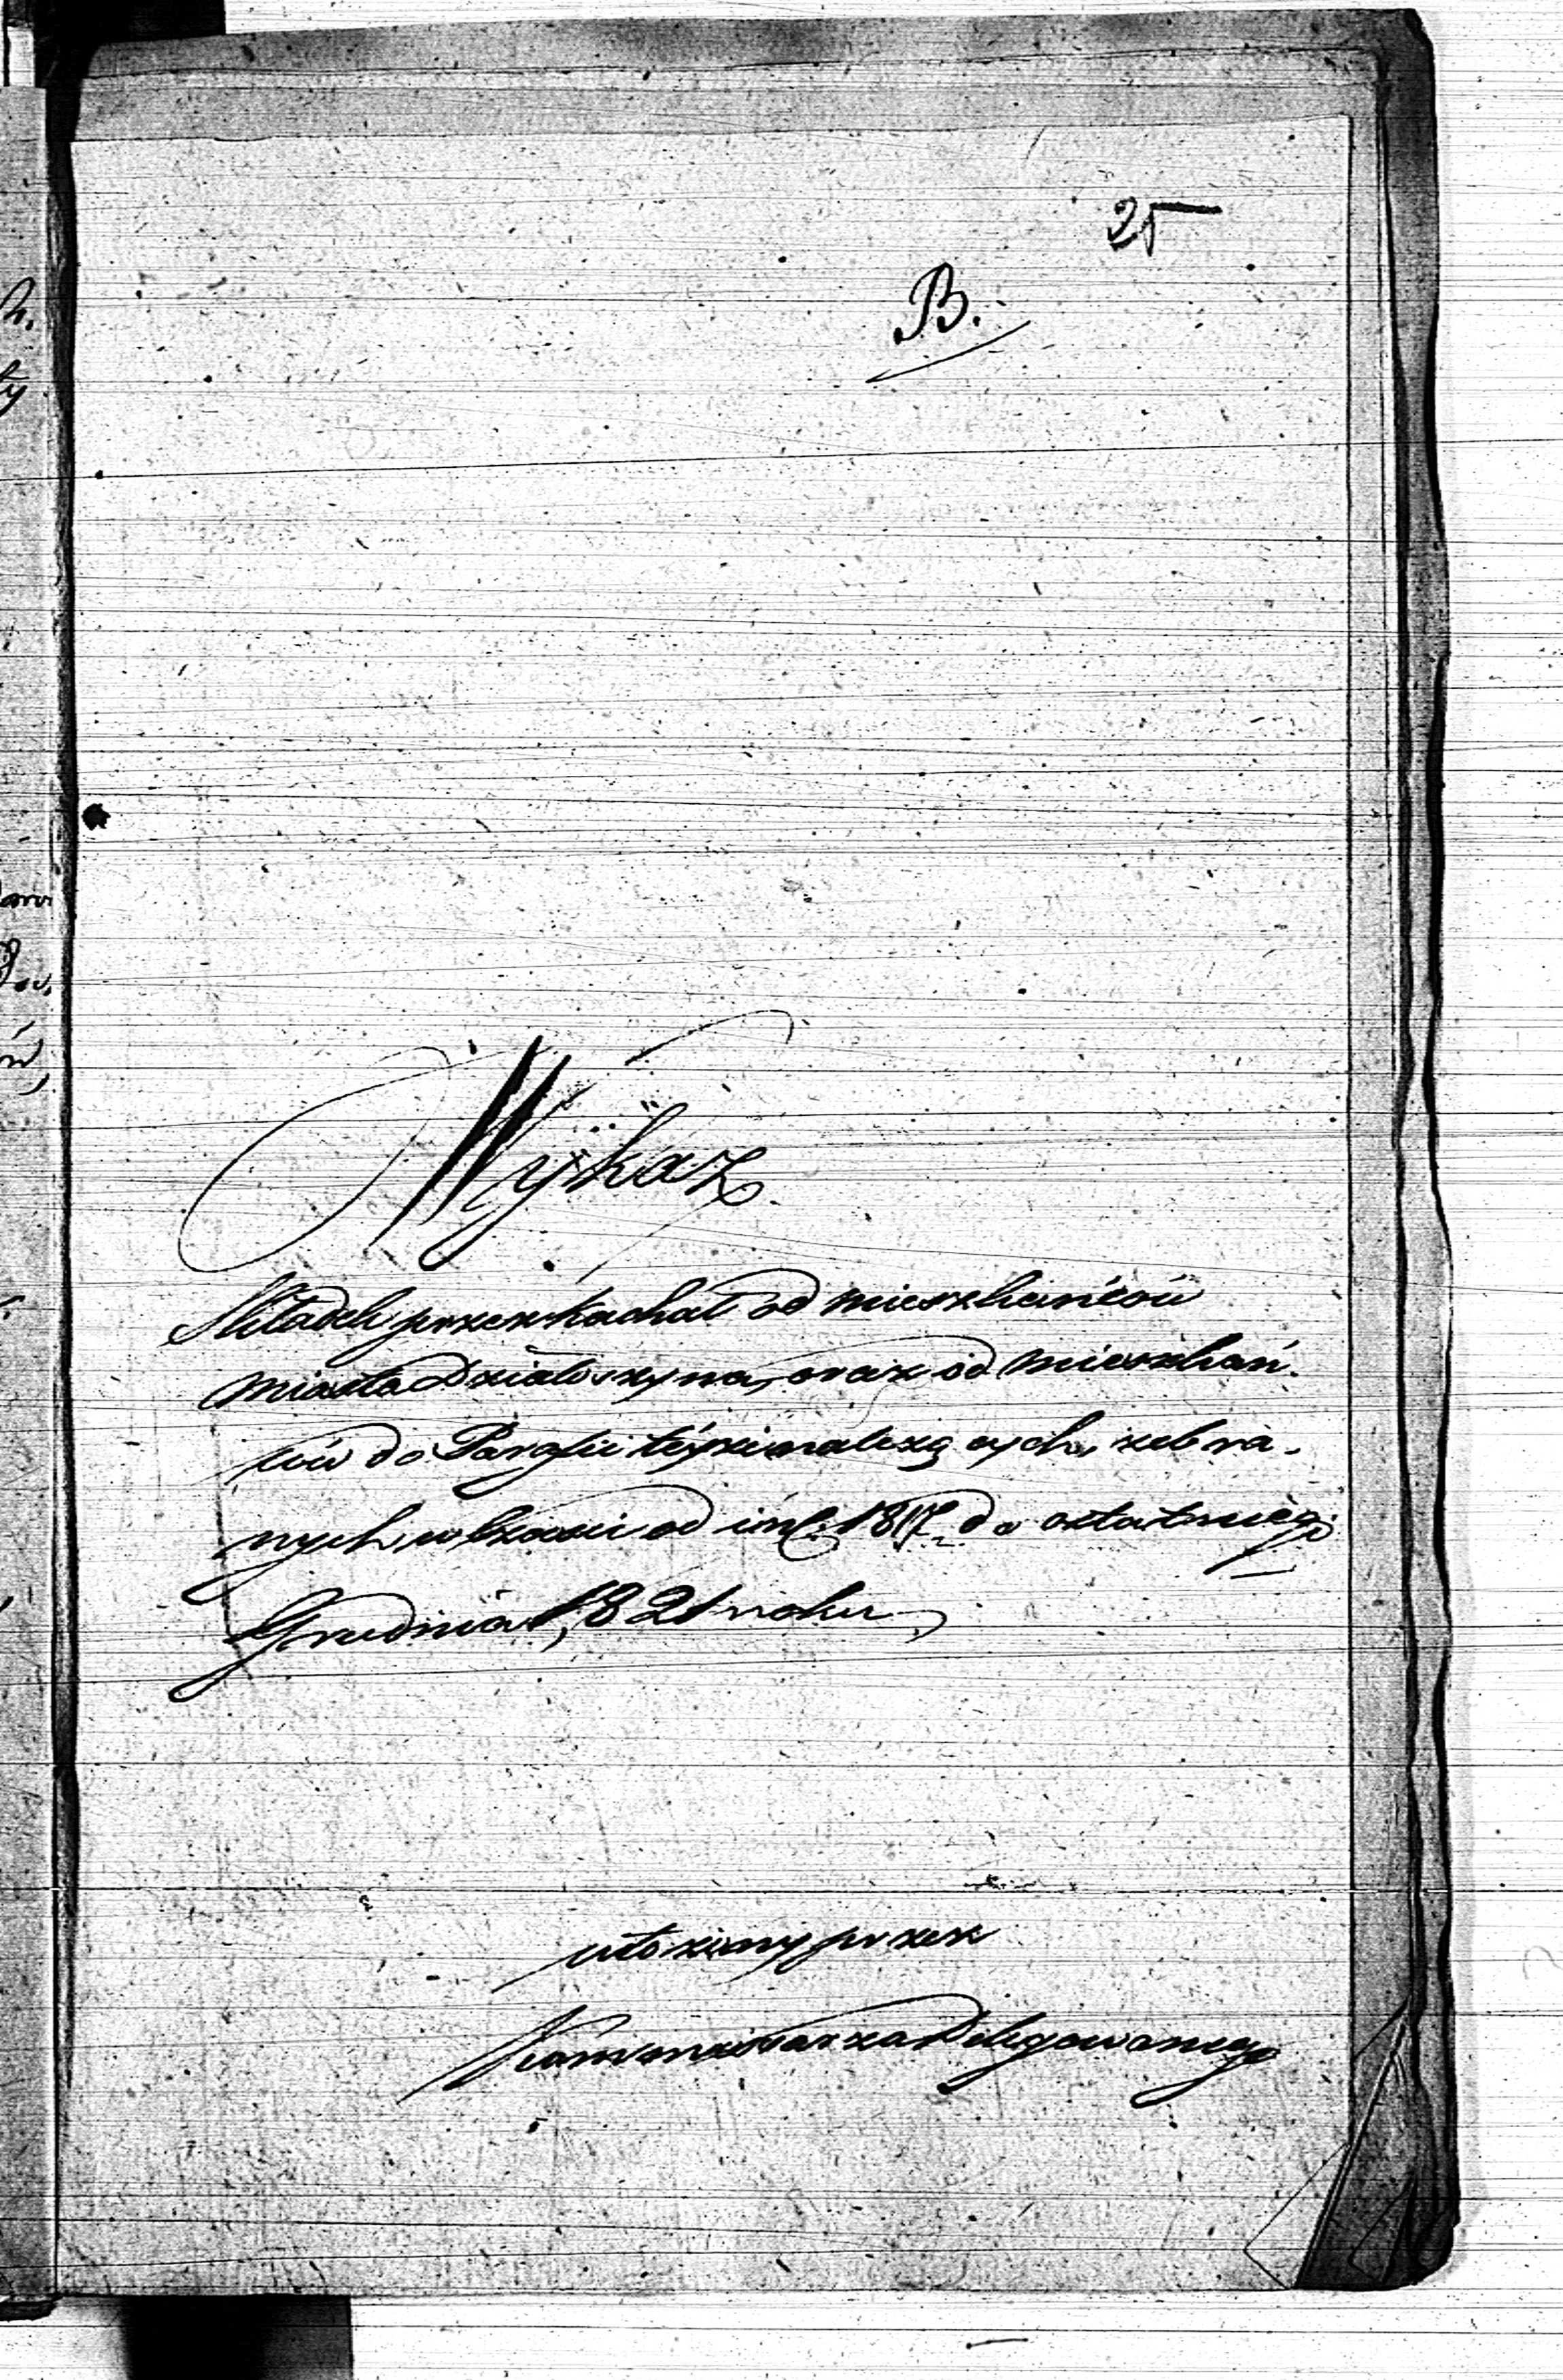 25
B.
Wÿkaz
Składek przez Kachał od mieszkańców
miasta Działoszyna, oraz od mieszkań-
ców do Parafii téyże należących, zebra-
nych w czasie od 1817 do ostatniego
Grudnia 1821 roku
ułożony przez
Kommissarza Delegowanego